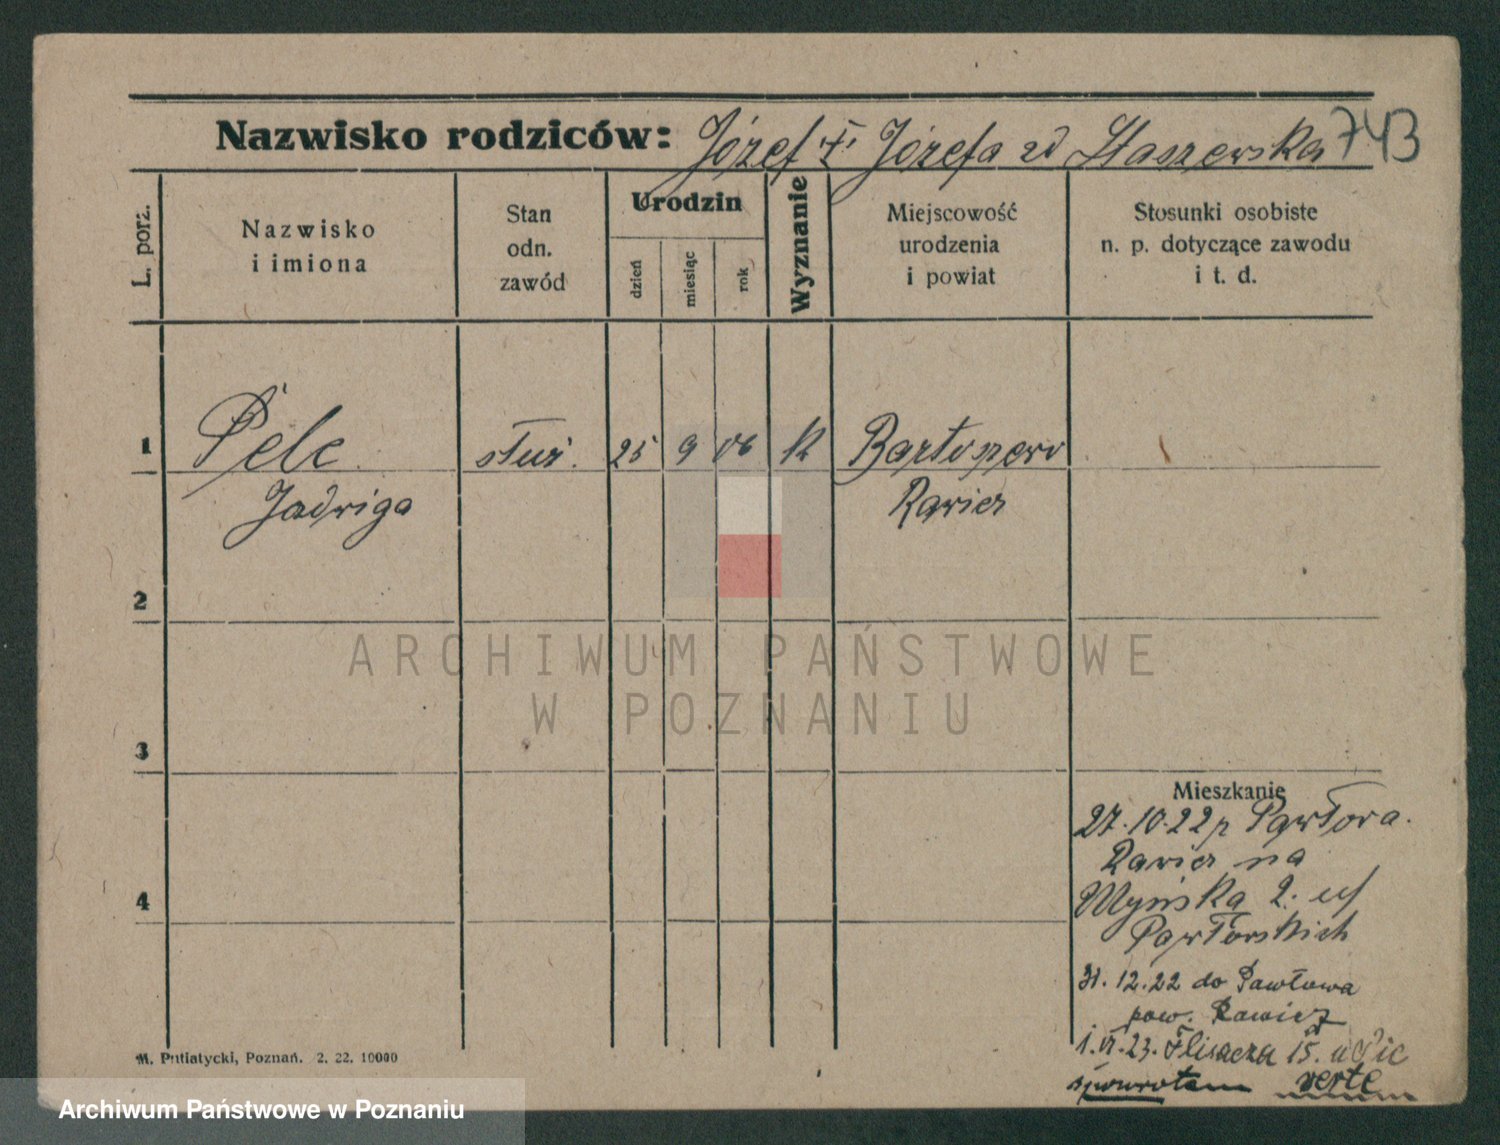 Nazwisko rodziców: Józef i Józefa zd Staszewska 743
L. porz.
Nazwisko
i imiona
Stan
odn.
zawód
Urodzin
dzień
miesiąc
rok
Wyznanie
Miejscowość
urodzenia
i powiat
Stosunki osobiste
n. p. dotyczące zawodu
i t. d.
1 Pelc służ. 25 9 06 K
Jadwiga Rawicz
2
3
4
ARCHIWUM PAŃSTWOWE
W POZNANIU
Mieszkanie
27.10.22 z Pawłowa.
Rawicz na
2.
31.12.22 do Pawłowa
pow. Rawicz
1.VI.23. Flisacza 15.
spowrotem verte
M. Putiatycki, Poznań. 2. 22. 10000
Archiwum Państwowe w Poznaniu